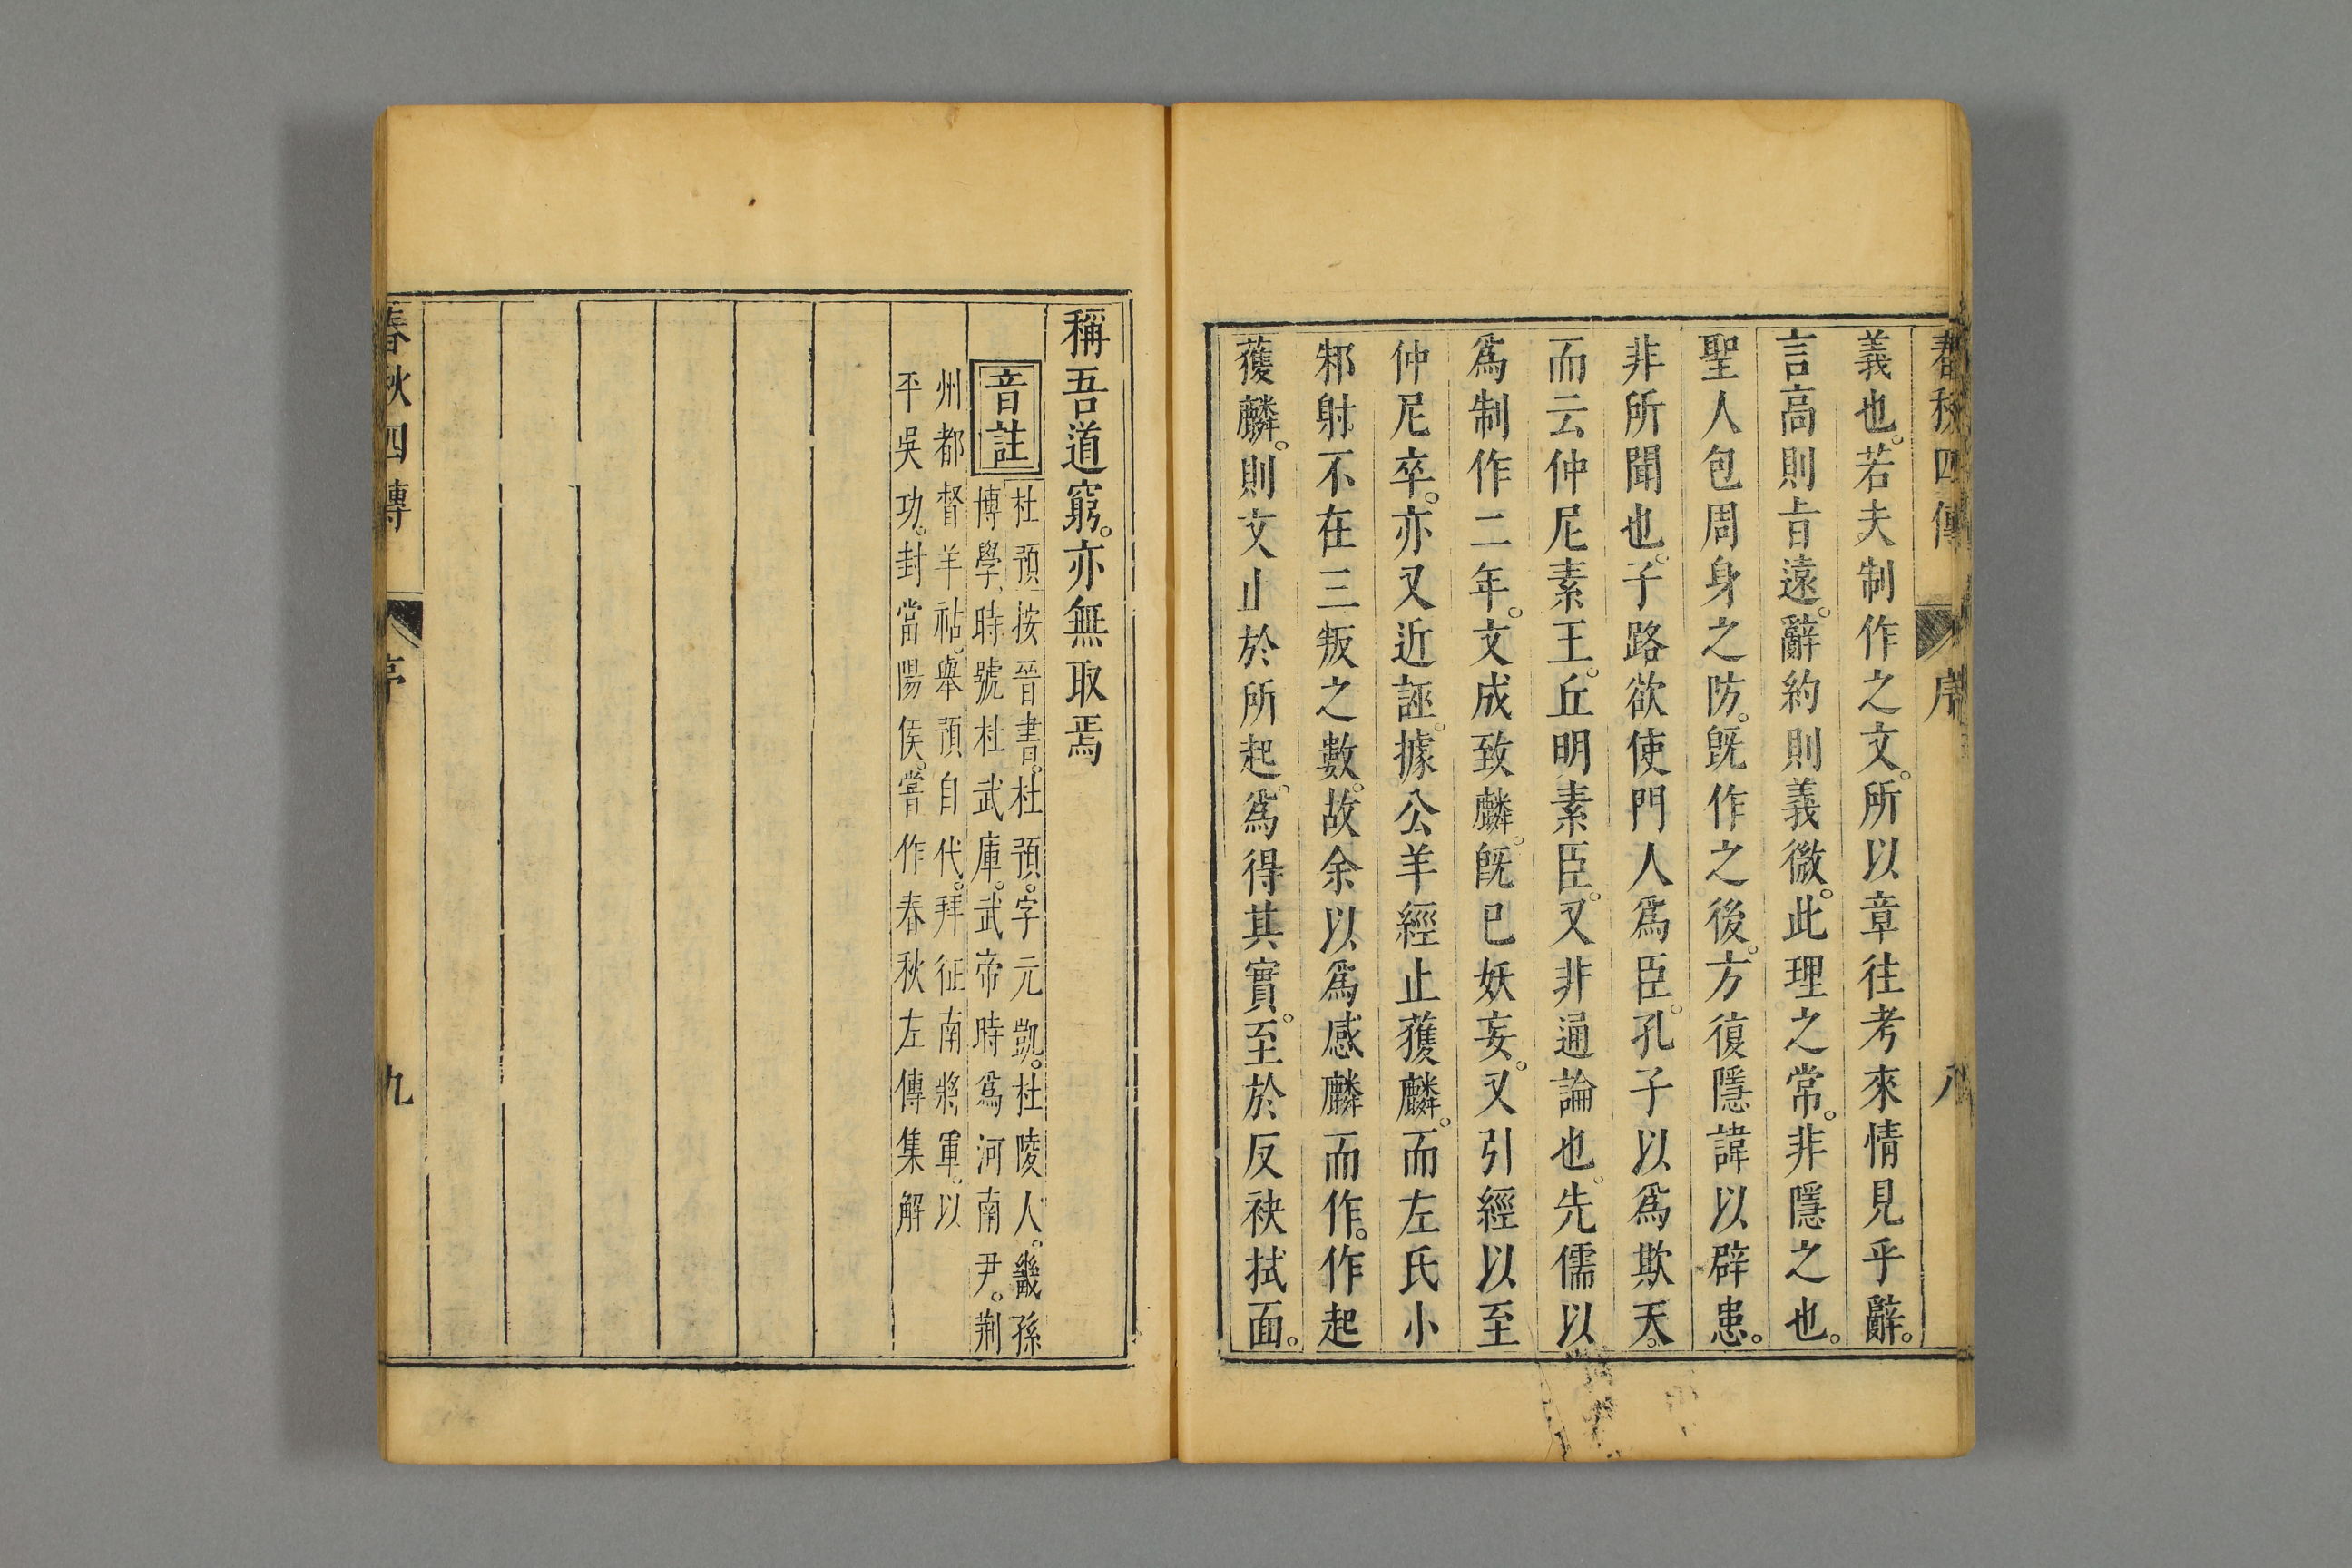 春秋四傳 序 八
義也。若夫制作之文。所以章往考來情見乎辭。
言高則㫖遠。辭約則義微。此理之常。非隱之也。
聖人包周身之防。旣作之後。方復隱諱以辟患。
非所聞也。子路欲使門人爲臣。孔子以爲欺天。
而云仲尼素王。丘明素臣。又非通論也。先儒以
爲制作二年。文成致麟。旣已妖妄。又引經以至
仲尼卒。亦又近誣。據公羊經止獲麟。而左氏小
邾射不在三叛之數。故余以爲感麟而作。作起
獲麟。則文止於所起。爲得其實。至於反袂拭面。
稱吾道窮。亦無取焉
音註
杜預 按晉書。杜預。字元凱。杜陵人。畿孫
博學。時號杜武庫。武帝時爲河南尹。荆
州都督羊祜。舉預自代。拜征南將軍。以
平吳功。封當陽侯。嘗作春秋左傳集解
春秋四傳 序 九